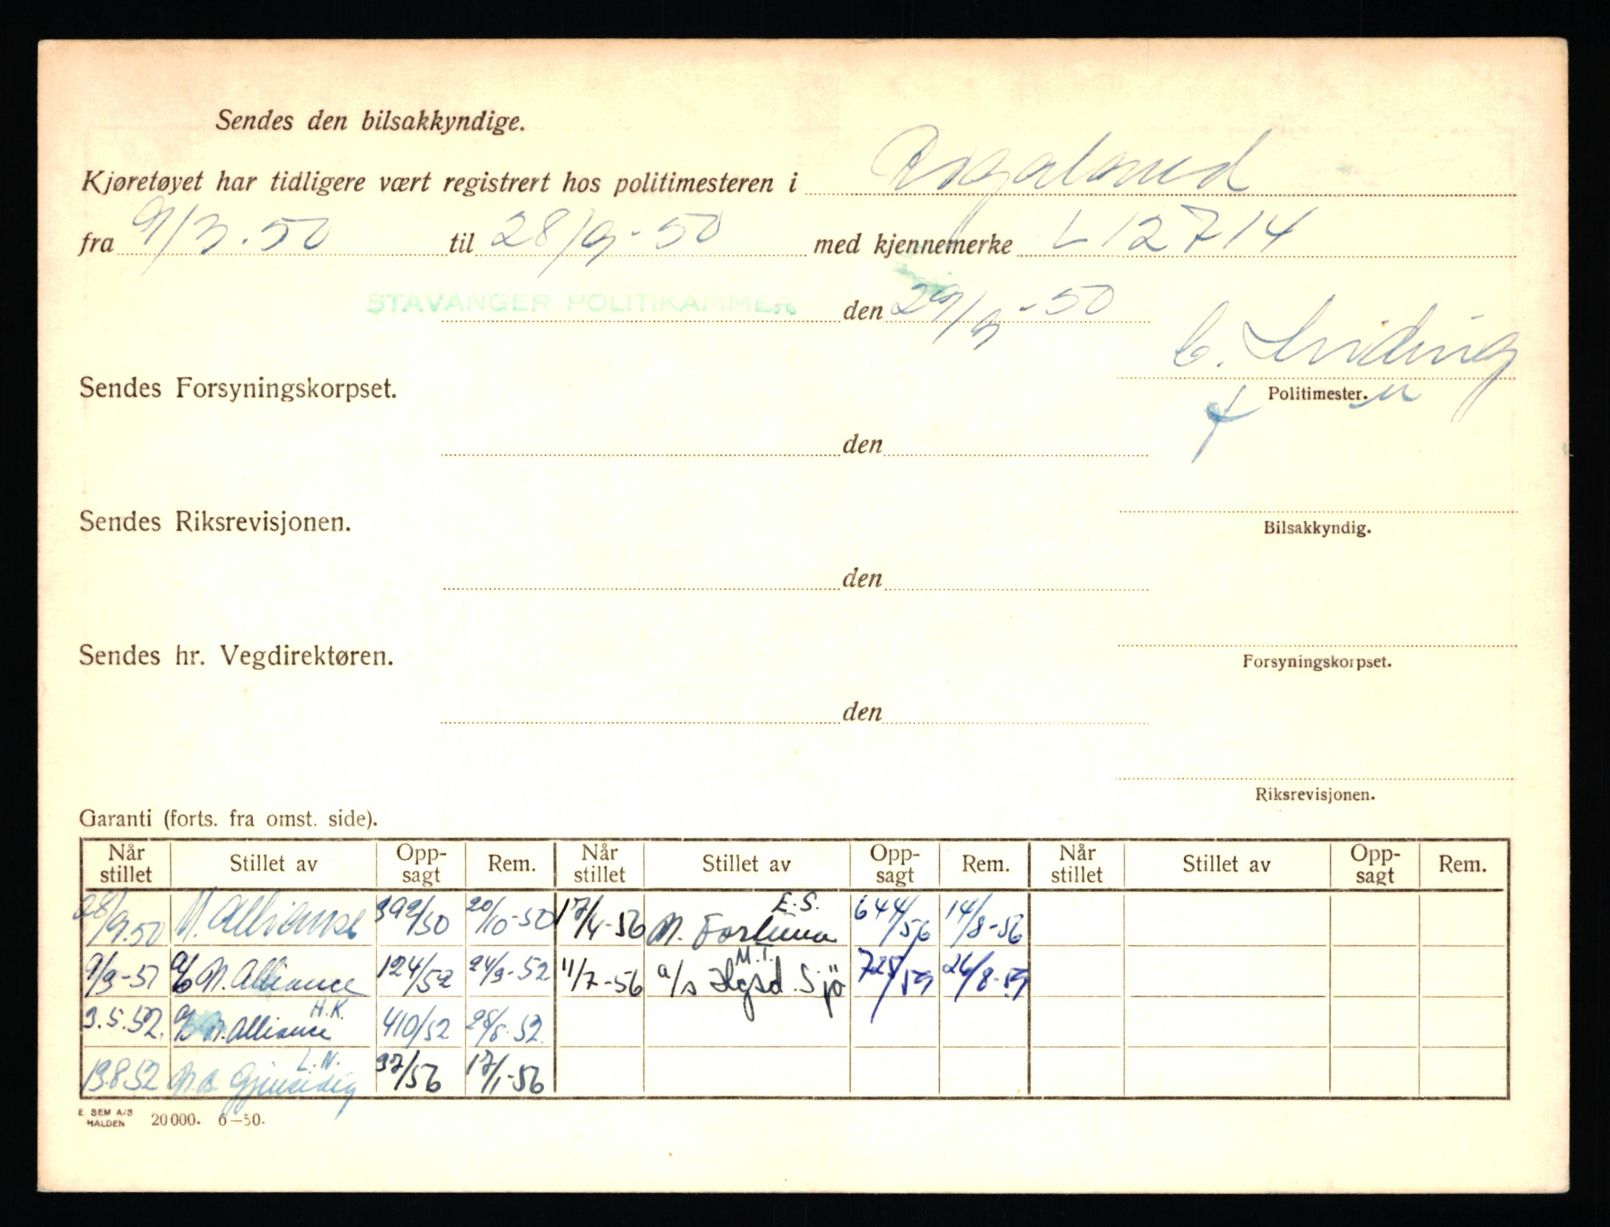 Sendes den bilsakkyndige.
Kjøretøyet har tidligere vært registrert hos politimesteren i Rogaland
fra 9/3.50 til 28/9-50 med kjennemerke L 12714
STAVANGER POLITIKAMMER den 29/9-50
Sendes Forsyningskorpset.
Politimester.
den
Sendes Riksrevisjonen.
Bilsakkyndig.
den
Sendes hr. Vegdirektøren.
Forsyningskorpset.
den
Riksrevisjonen.
Garanti (forts. fra omst. side).
Når stillet Stillet av Opp-sagt Rem. Når stillet Stillet av Opp-sagt Rem. Når stillet Stillet av Opp-sagt Rem.
28/9.50 N. Alliance 392/50 20/10-50 17/4-56 N. Fortuna E.S. 644/56 14/8-56
9/3-51 N. Alliance 124/52 24/3-52 11/7-56 a/s Hgsd. Sjö M.T. 725/59 26/8-59
3.5.52. N. Alliance H.K. 410/52 25/8-52
13.8.52 Gjensidig L.N. 37/56 17/1-56
E. SEM A/S HALDEN 20000. 6-50.